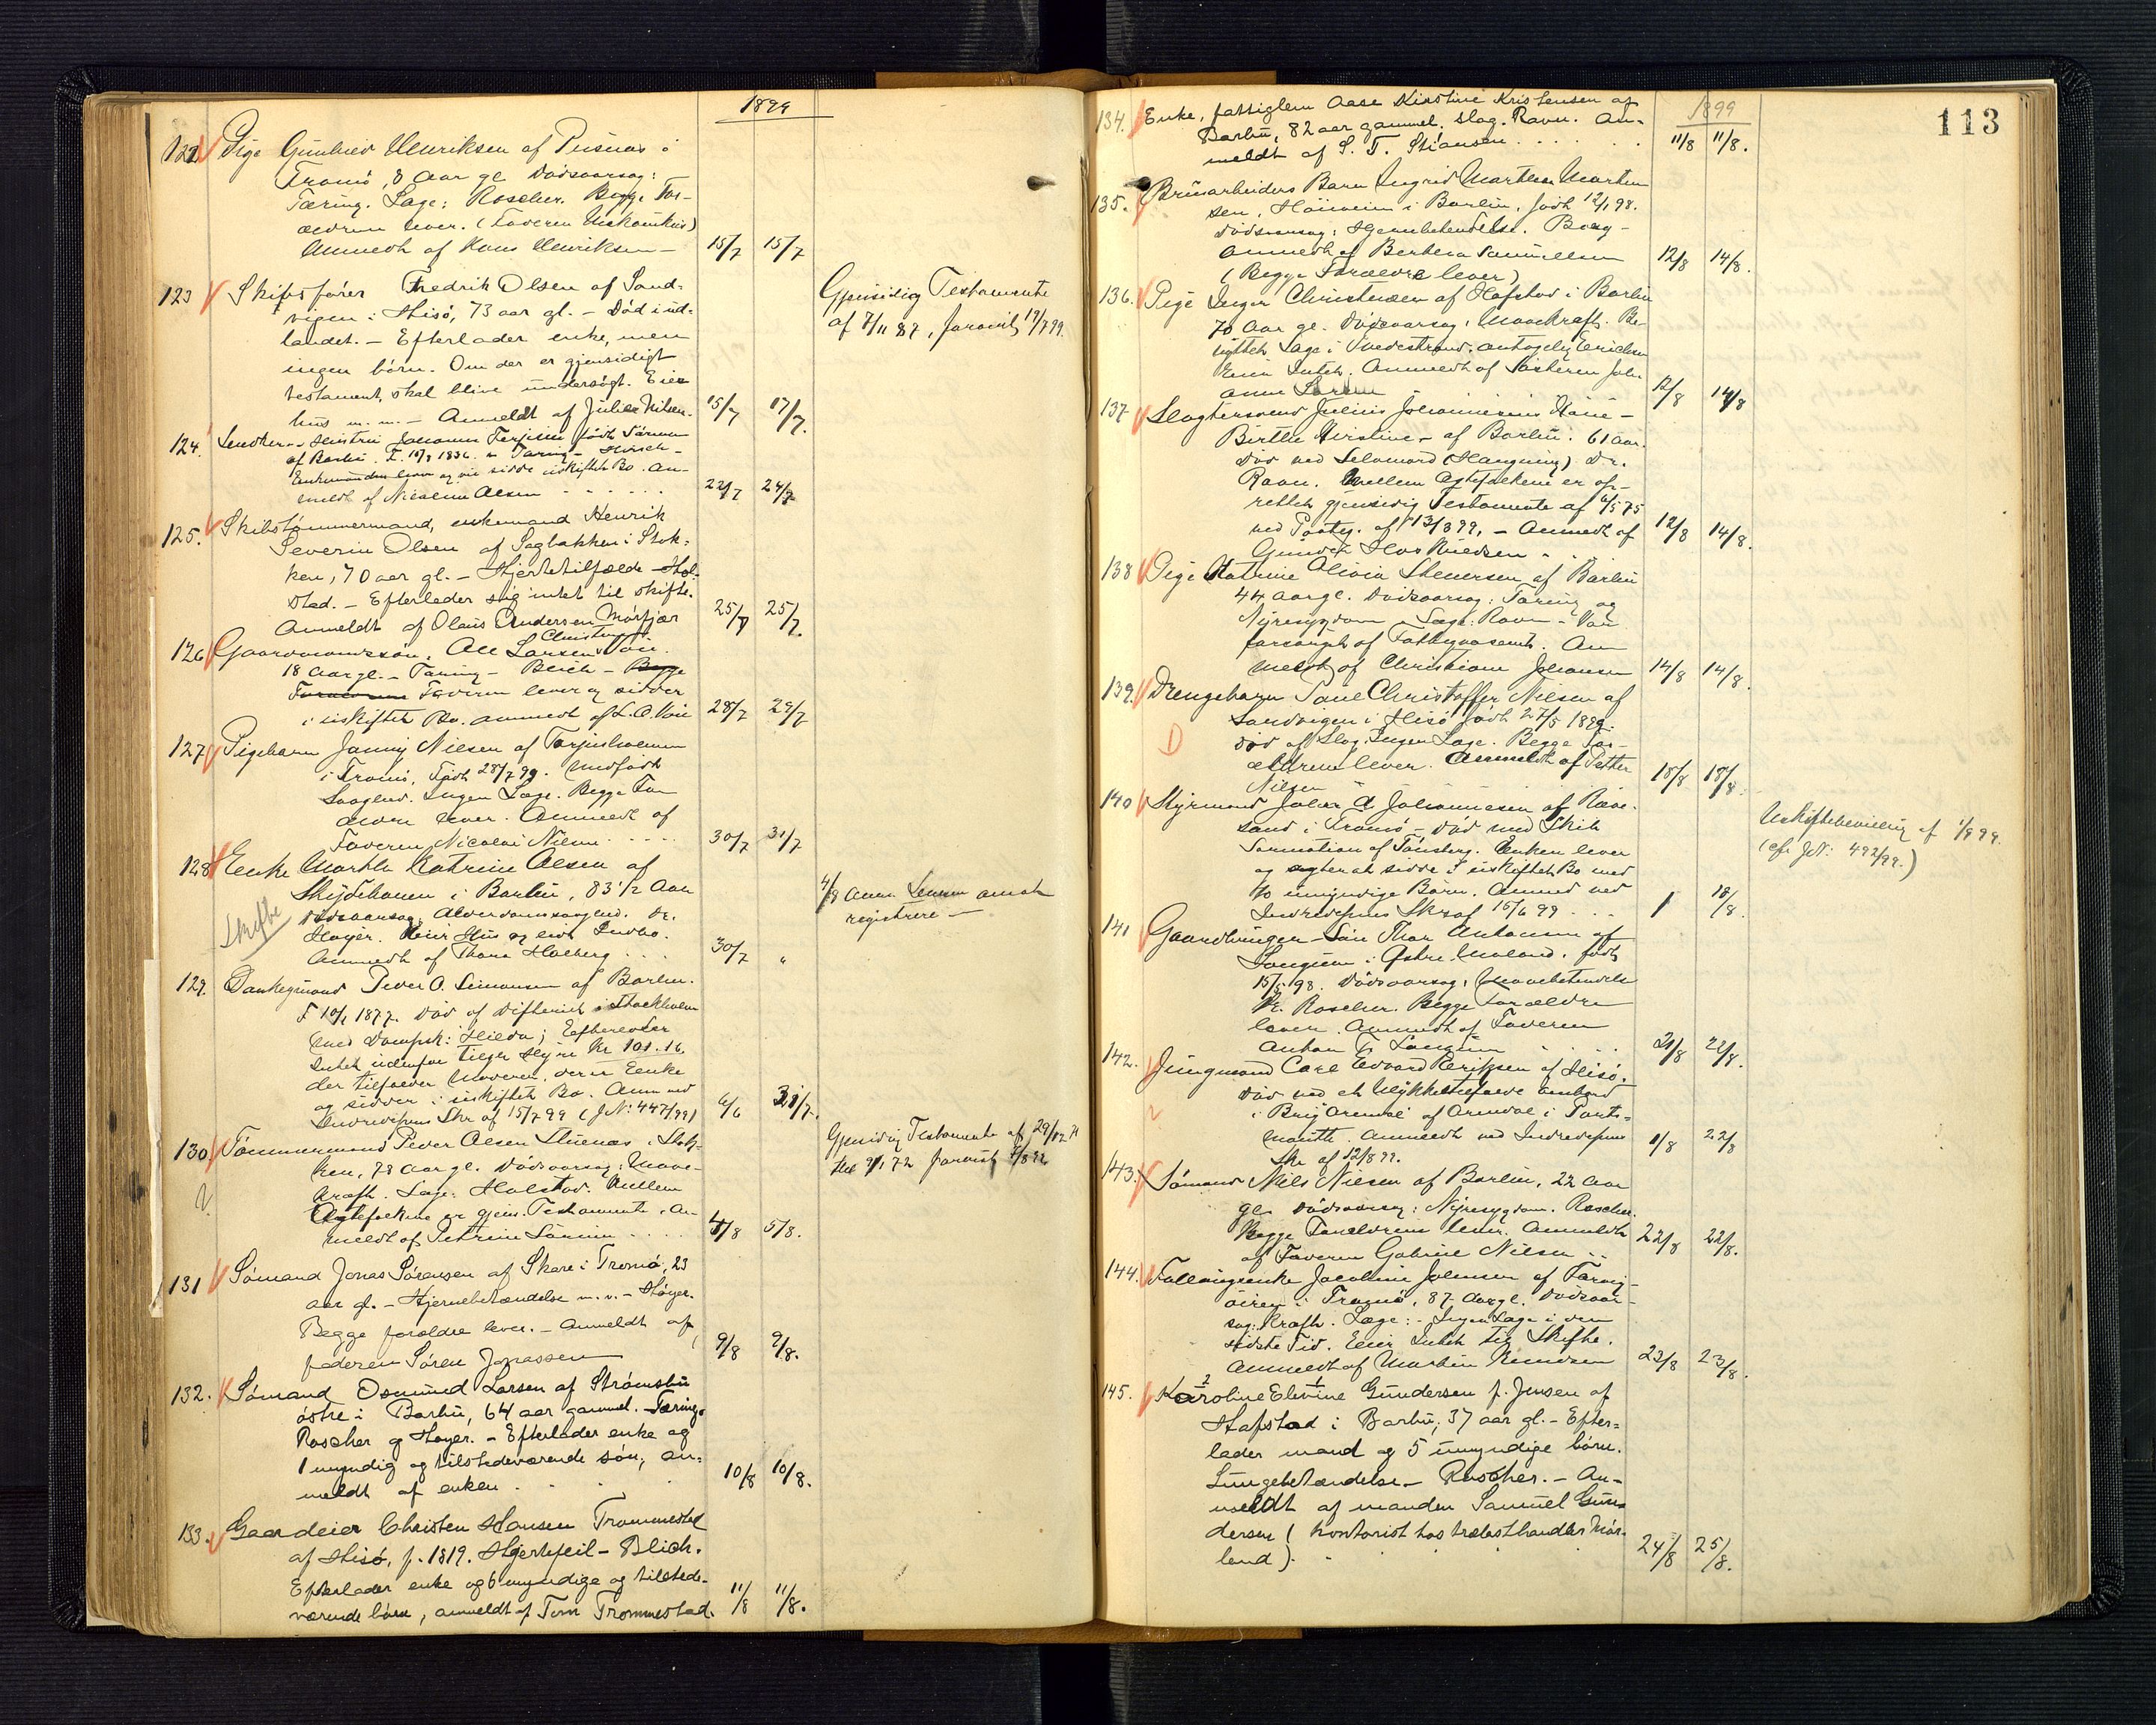 1899
122 Pige Gunhild Henriksen af Pusnes i
Tromö, 8 Aar gl Dödsaarsag:
Tæring. Læge: Roscher. Begge For-
ældrene lever. (Faderen
Anmeldt af Hans Henriksen — 15/7 15/7
123 Skibsförer Fredrik Olsen af Sand-
vigen i Hisö, 73 aar gl. – Död i ud-
landet. – Efterlader enke, men
ingen börn. Om der er gjensidigt
testament, skal blive undersögt. Eier
hus m. m. – Anmeldt af Julie Nilsen. 15/7 17/7.
Gjensidig Testamente
af 7/11 87, 17/7 99.
124. Hustru Johanne Terjesen födt
af Barbu. F. 1836. Tæring –
Enkemanden lever og vil sidde i uskiftet Bo. An-
meldt af Nicoline Olsen . . . . . . 22/7 24/7
125. Skibstömmermand, enkemand Henrik
Severin Olsen af Sagbakken i Stok-
ken, 70 aar gl. – Hjertetilfælde – Hol-
stad. – Efterlader sig intet til skifte.
Anmeldt af Olaus Andersen Mörfjær 25/7 25/7.
126 Gaardmandssön, Ole Larsen
18 Aar gl. – Tæring – Blich – Begge
Forældrene Faderen lever og sidder
i uskiftet Bo. anmeldt af L. O. 28/7 29/7
127 Pigebarn Jenny Nielsen af Torjusholmen
i Tromö, Födt 28/7 99. Medfödt
Svaghed. Ingen Læge. Begge For
ældre lever. Anmeldt af
Faderen Nicolai Nilsen . . . . 30/7 31/7
128 Enke Marthe Katrine Olsen af
Skydebanen i Barbu, 83 1/2 Aar
Dödsaarsag: Alderdomssvaghed. Dr.
Höyer. Eier Hus og lidt Indbo.
Anmeldt af Thora Holberg . . . 30/7 "
Skifte
4/8 anm. Lensm. anmodet
registrere —
129. Dæksgmand Peder O. Simonsen af Barbu.
F 10/1 1877. Död af Difterit i Stockholm
med Dampsk: Hilda; Efterlader
Intet udenfor tilgode Hyre Kr 101.16.
der tilfalder Moderen, der er Enke
og sidder i uskiftet Bo. Anm ved
Indredepins Skr af 15/7 99 (JN: 447/99) 6/6 31/7.
130 Tömmermand Peder Olsen Stuenes i Stok-
ken, 78 aar gl. Dödsaarsag: Mave-
kræft. Læge: Holstad. Mellem
Ægtefolkene er gjens. Testamente. An-
meldt af Petrine Sörum . . . . 4/8 5/8.
Gjensidig Testamente af 29/12 71
131 Sömand Jonas Sörensen af Skare i Tromö, 23
aar gl. – Hjernebetændelse m. v. – Höyer.
Begge forældre lever. – Anmeldt af
faderen Sören Jonassen 9/8 9/8.
132. Sömand Osmund Larsen af Strömsbu
östre i Barbu, 64 aar gammel. Tæring.
Roscher og Höyer. – Efterlader enke og
1 myndig og tilstedeværende sön; an-
meldt af enken . . . . 10/8 10/8.
133. Gaardeier Christen Hansen Trommestad
af Hisö, f. 1819. Hjertefeil – Blich.
Efterlader enke og 6 myndige og tilstede-
værende börn, anmeldt af Tom Trommestad. 11/8 11/8.
113
1899
134. Enke, fattiglem Aase Kirstine Kristensen af
Barbu, 82 aar gammel. slag. Ravn. An-
meldt af S. T. Stiansen . . . . . . 11/8 11/8.
135. Brusarbeiders Barn Ingrid Marthea Morten
sen, i Barbu. födt 12/1 98.
Dödsaarsag: Hjernebetændelse.
Anmeldt af Berthea Samuelsen 12/8 14/8.
(Begge Forældre lever)
136. Pige Inger Christensen af Hafstad i Barbu
70 Aar gl. Dödsaarsag: Mavekræft. Be-
nyttet Læge i Tvedestrand; antagelig Erichsen
Eier Intet. Anmeldt af Södskendebarn Joh-
anne Larsen 12/8 14/8
137 Slagtersvend Julius Johannesens Kone –
Birthe Kirstine – af Barbu. 61 aar.
Död ved Selvmord (Hængning) Dr.
Ravn. Mellem Ægtefolkene er op-
rettet gjensidig Testamente af 6/5 75
ved Paateg. af 13/3 99, – Anmeldt af
Gunder Hos Knudsen . . . 12/8 14/8.
138 Pige Katrine Olivia Stenersen af Barbu
44 aar gl. Dödsaarsag: Tæring og
Nyresygdom – Læge: Ravn – Var
forsörget af Fattigvæsenet. An
meldt af Christiane Johansen 14/8 14/8.
139. Drengebarn Paul Christoffer Nielsen af
Sandvigen i Hisö födt 27/5 1899.
död af Slag. Ingen Læge. Begge For-
ældrene lever. Anmeldt af Petter
Nilsen 18/8 18/8.
140 Styrmand Johan A Johannesen af Ræve-
sand i Tromö – död med Skib
Somation af Tönsberg. Enken lever
og agter at sidde i uskiftet Bo med
to umyndige Börn. Anmeld ved
Indredepins Skr af 15/6 99 . . . 18/8.
Uskiftebevilling af 1/9 99.
(cfr JN: 492/99.)
141 Gaardbruger-Sön Thor Antonsen af
Longum i Östre Moland. födt
15/5 98. Dödsaarsag: Mavebetændelse
Dr. Roscher. Begge Forældre
lever. Anmeldt af Faderen
Anton T. Longum . . . . 21/8 22/8.
142. Jungmand Carl Edvard Reritzsen af Hisö.
Död ved et Ulykkestilfælde ombord
i Brig Arendal af Arendal i Ports-
mouth. Anmeldt ved Indredepins
Skr af 12/8 99. 1/8 22/8
143. Sömand Nils Nielsen af Barbu, 22 Aar
gl. Dödsaarsag: Nyresygdom. Roscher.
Begge Forældrene lever. Anmeldt
af Faderen Gabriel Nilsen . . 22/8 22/8.
144. Fallosenke Jacobine Johnsen af Færvig-
öiren i Tromö, 87 Aar gl. Dödsaar-
sag: Kræft. Læge: – Ingen Læge i den
sidste Tid. Eier Intet til Skifte.
Anmeldt af Martin Knudsen 23/8 23/8.
145. Karoline Elevine Gundersen f. Jensen af
Hafstad i Barbu, 37 aar gl. – Efter-
lader mand og 5 umyndige börn.
Lungebetændelse – Roscher. – An-
meldt af manden Samuel Gun-
dersen (kontorist hos trælasthandler Mör-
land). . . . . . . 24/8 25/8.